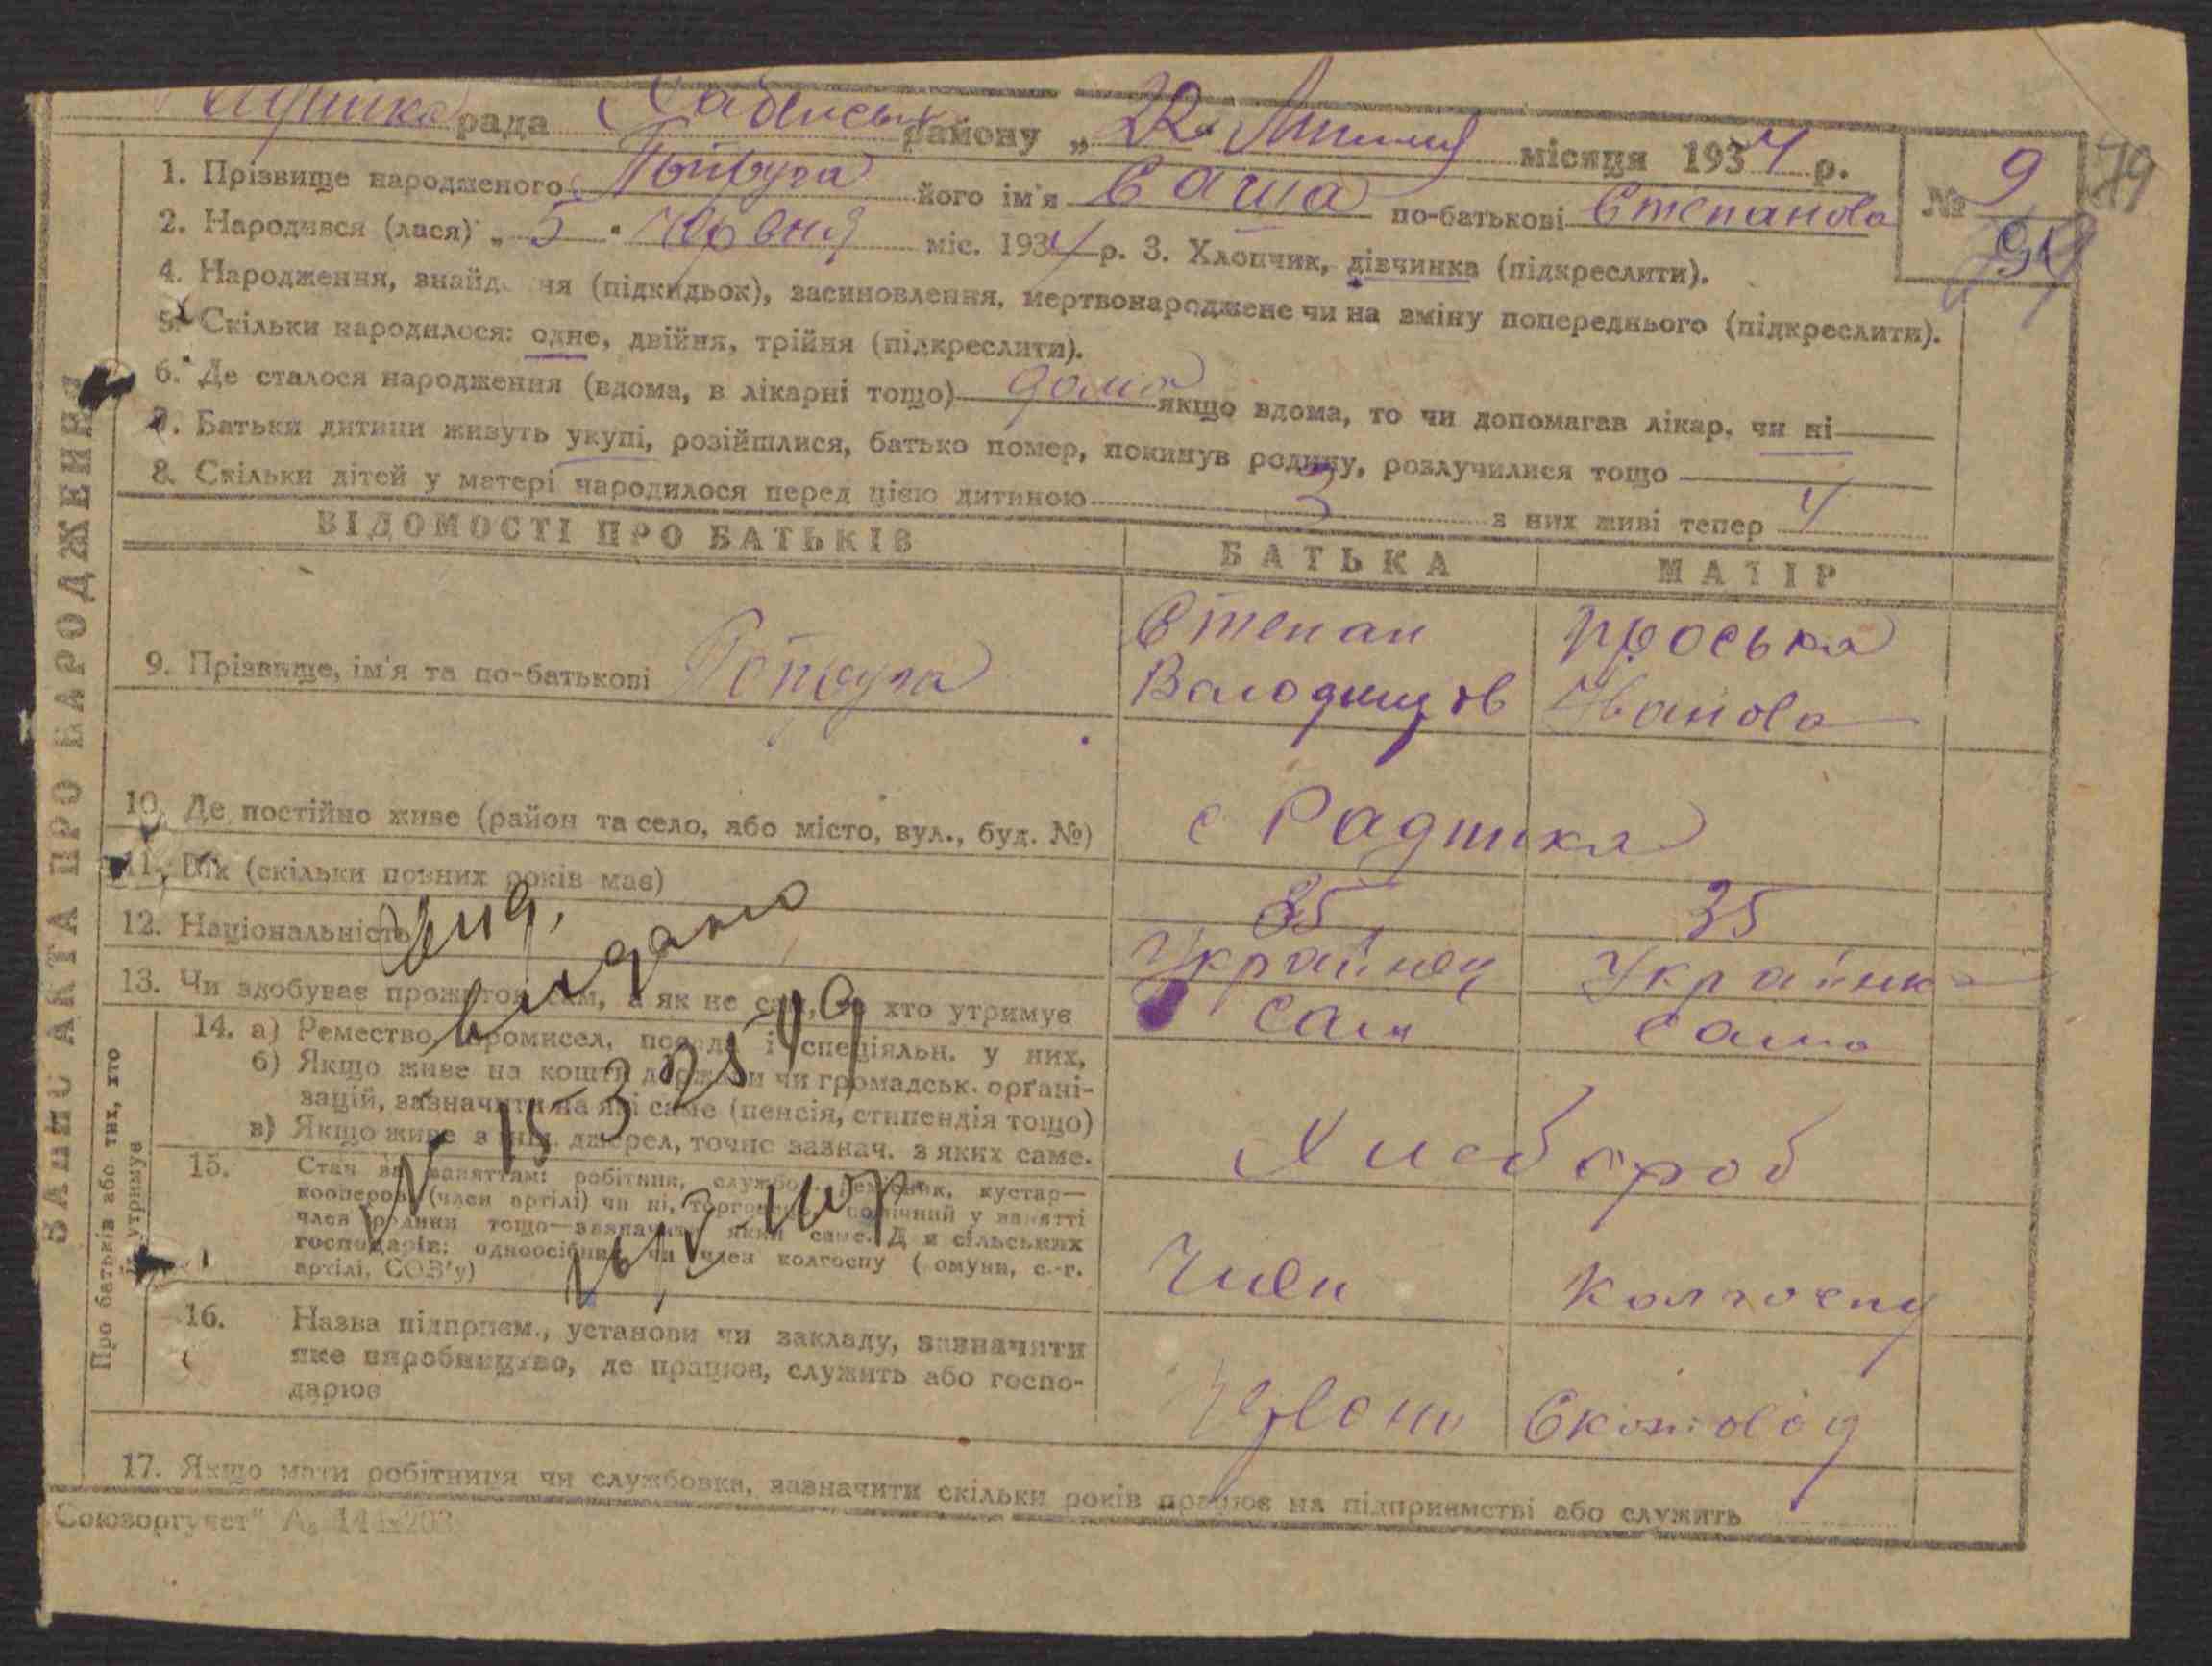 рада Хабенськ району „ 22 Липня місяця 1934 р.
№ 9
79
1. Прізвище народженого його ім'я Саша по-батькові Степанова
2. Народився (лася) „ 5 " червня міс. 1934 р. 3. Хлопчик, дівчинка (підкреслити).
4. Народження, знайд ня (підкидьок), засиновлення, мертвонароджене чи на зміну попереднього (підкреслити).
5. Скільки народилося: одне, двійня, трійня (підкреслити).
6. Де сталося народження (вдома, в лікарні тощо) дома якщо вдома, то чи допомагав лікар, чи ні
7. Батьки дитини живуть укупі, розійшлися, батько помер, покинув родину, розлучилися тощо
8. Скільки дітей у матері народилося перед цією дитиною 3 з них живі тепер 4
ВІДОМОСТІ ПРО БАТЬКІВ БАТЬКА МАТІР
9. Прізвище, ім'я та по-батькові Степан Проська
Володимиров Іванова
10. Де постійно живе (район та село, або місто, вул., буд. №) с Радинка
11. Вік (скільки повних років має) 35 35
12. Національність Українец Українка
13. Чи здобуває прожиток сам, а як не сам, то хто утримує сам сама
14. а) Ремество, промисел, посада і спеціяльн. у них,
б) Якщо живе на кошти держави чи громадськ. органі-
зацій, зазначити на які саме (пенсія, стипендія тощо)
в) Якщо живе з інш. джерел, точно зазнач. з яких саме.
Хлебороб
15. Стан за заняттям: робітник, службов., ремісник, кустар—
кооперов. (член артілі) чи ні, торговець, помічний у занятті
член родини тощо—зазначити який саме. Для сільських
господарів: одноосібник чи член колгоспу (комуни, с.-г.
артілі, СОЗ'у)
Член колгоспу
16. Назва підприєм., установи чи закладу, зазначити
яке виробництво, де працює, служить або госпо-
дарює
Червони Скотовод
17. Якщо мати робітниця чи службовка, зазначити скільки років працює на підприємстві або служить
Союзоргучет"
ЗАПИС АКТА ПРО НАРОДЖЕННЯ
Про батьків або тих, хто
їх утримує
видано